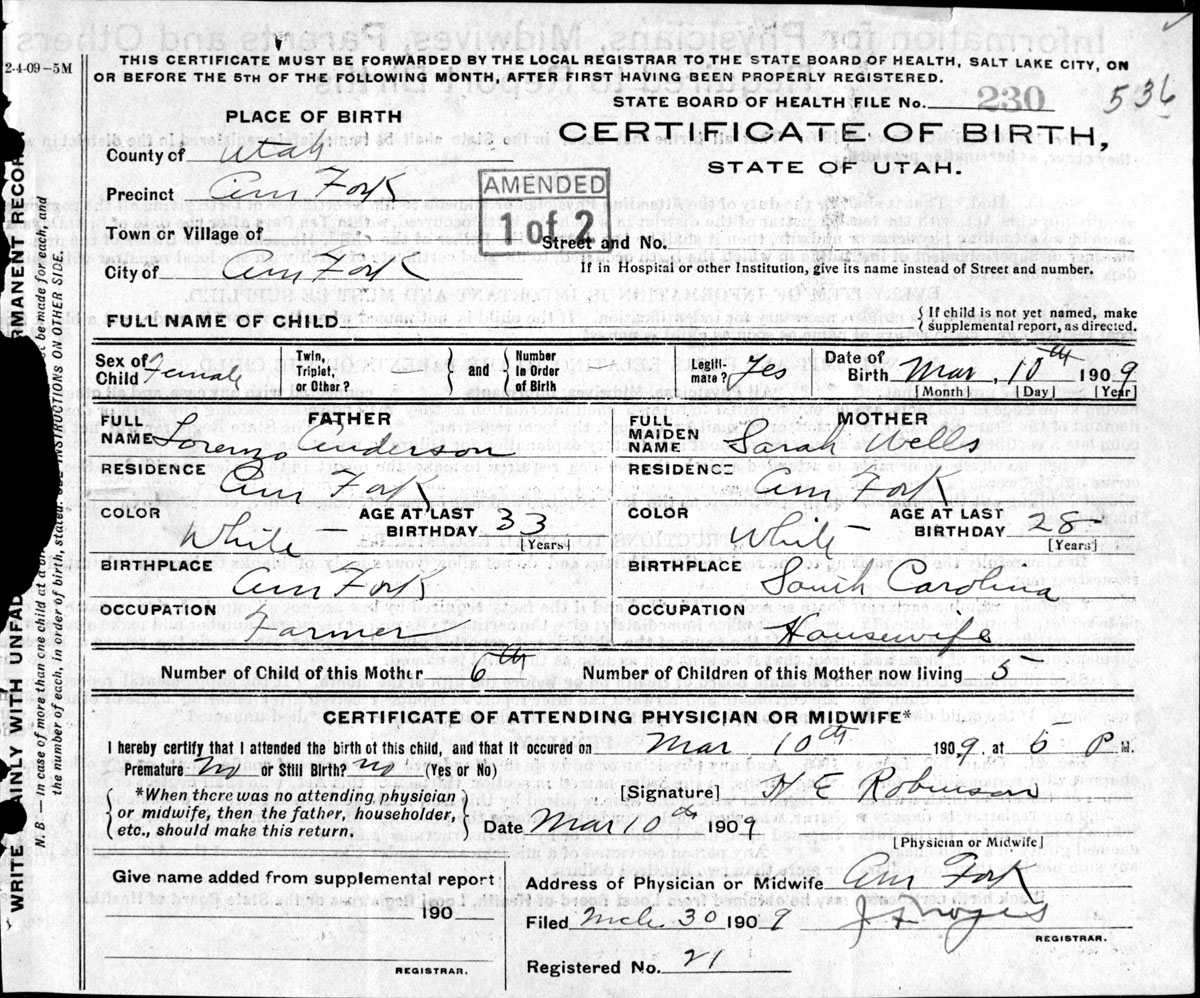 2-4-09-5M
THIS CERTIFICATE MUST BE FORWARDED BY THE LOCAL REGISTRAR TO THE STATE BOARD OF HEALTH, SALT LAKE CITY, ON
OR BEFORE THE 5TH OF THE FOLLOWING MONTH, AFTER FIRST HAVING BEEN PROPERLY REGISTERED.
STATE BOARD OF HEALTH FILE No. 230 536
PLACE OF BIRTH
CERTIFICATE OF BIRTH,
STATE OF UTAH.
County of Utah
Precinct Am Fork
AMENDED
1 of 2
Town or Village of
Street and No.
City of Am Fork
If in Hospital or other Institution, give its name instead of Street and number.
FULL NAME OF CHILD
{ If child is not yet named, make
supplemental report, as directed.
Sex of Child Female
Twin, Triplet, or Other? } and { Number in Order of Birth
Legiti-mate? Yes
Date of Birth Mar 10th 1909
[Month] [Day] [Year]
FATHER
FULL NAME Lorenzo Anderson
RESIDENCE
Am Fork
COLOR White
AGE AT LAST BIRTHDAY 33
[Years]
BIRTHPLACE
Am Fork
OCCUPATION
Farmer
MOTHER
FULL MAIDEN NAME Sarah Wells
RESIDENCE
Am Fork
COLOR White
AGE AT LAST BIRTHDAY 28
[Years]
BIRTHPLACE
South Carolina
OCCUPATION
Housewife
Number of Child of this Mother 6th Number of Children of this Mother now living 5
CERTIFICATE OF ATTENDING PHYSICIAN OR MIDWIFE*
I hereby certify that I attended the birth of this child, and that it occured on Mar 10th 1909, at 6 P M.
Premature? No or Still Birth? no (Yes or No)
{ *When there was no attending physician
or midwife, then the father, householder,
etc., should make this return. }
[Signature] H E Robinson
Date Mar 10th 1909
[Physician or Midwife]
Give name added from supplemental report
190
REGISTRAR.
Address of Physician or Midwife Am Fork
Filed Mch 30 1909
REGISTRAR.
Registered No. 21
WRITE PLAINLY WITH UNFAD
RMANENT RECOR
N. B. — In case of more than one child at a
st be made for each, and
the number of each, in order of birth, stated. SEE INSTRUCTIONS ON OTHER SIDE.